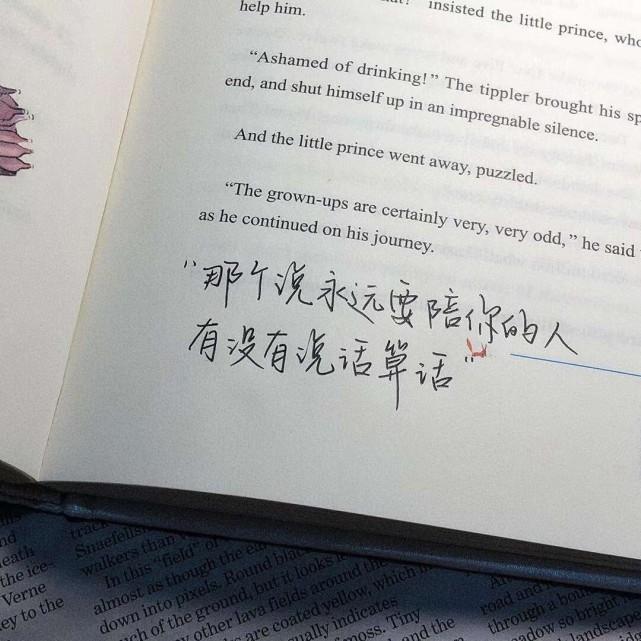 insisted the little prince, who
help him.
“Ashamed of drinking!” The tippler brought his sp
end, and shut himself up in an impregnable silence.
And the little prince went away, puzzled.
“The grown-ups are certainly very, very odd,” he said
as he continued on his journey.
“那个说永远要陪你的人
有没有说话算话”
and
death
the ice-
Verne
ey to the
track
Snaefells
walkers than
In this “field” of
almost as though the ea
down into pixels. Round blac
ch of the ground, but it looks
other lava fields around the
are coated yellow, which
ually indicates
moss. Tiny
and the
road and
through a bou
adow so bright
landscap